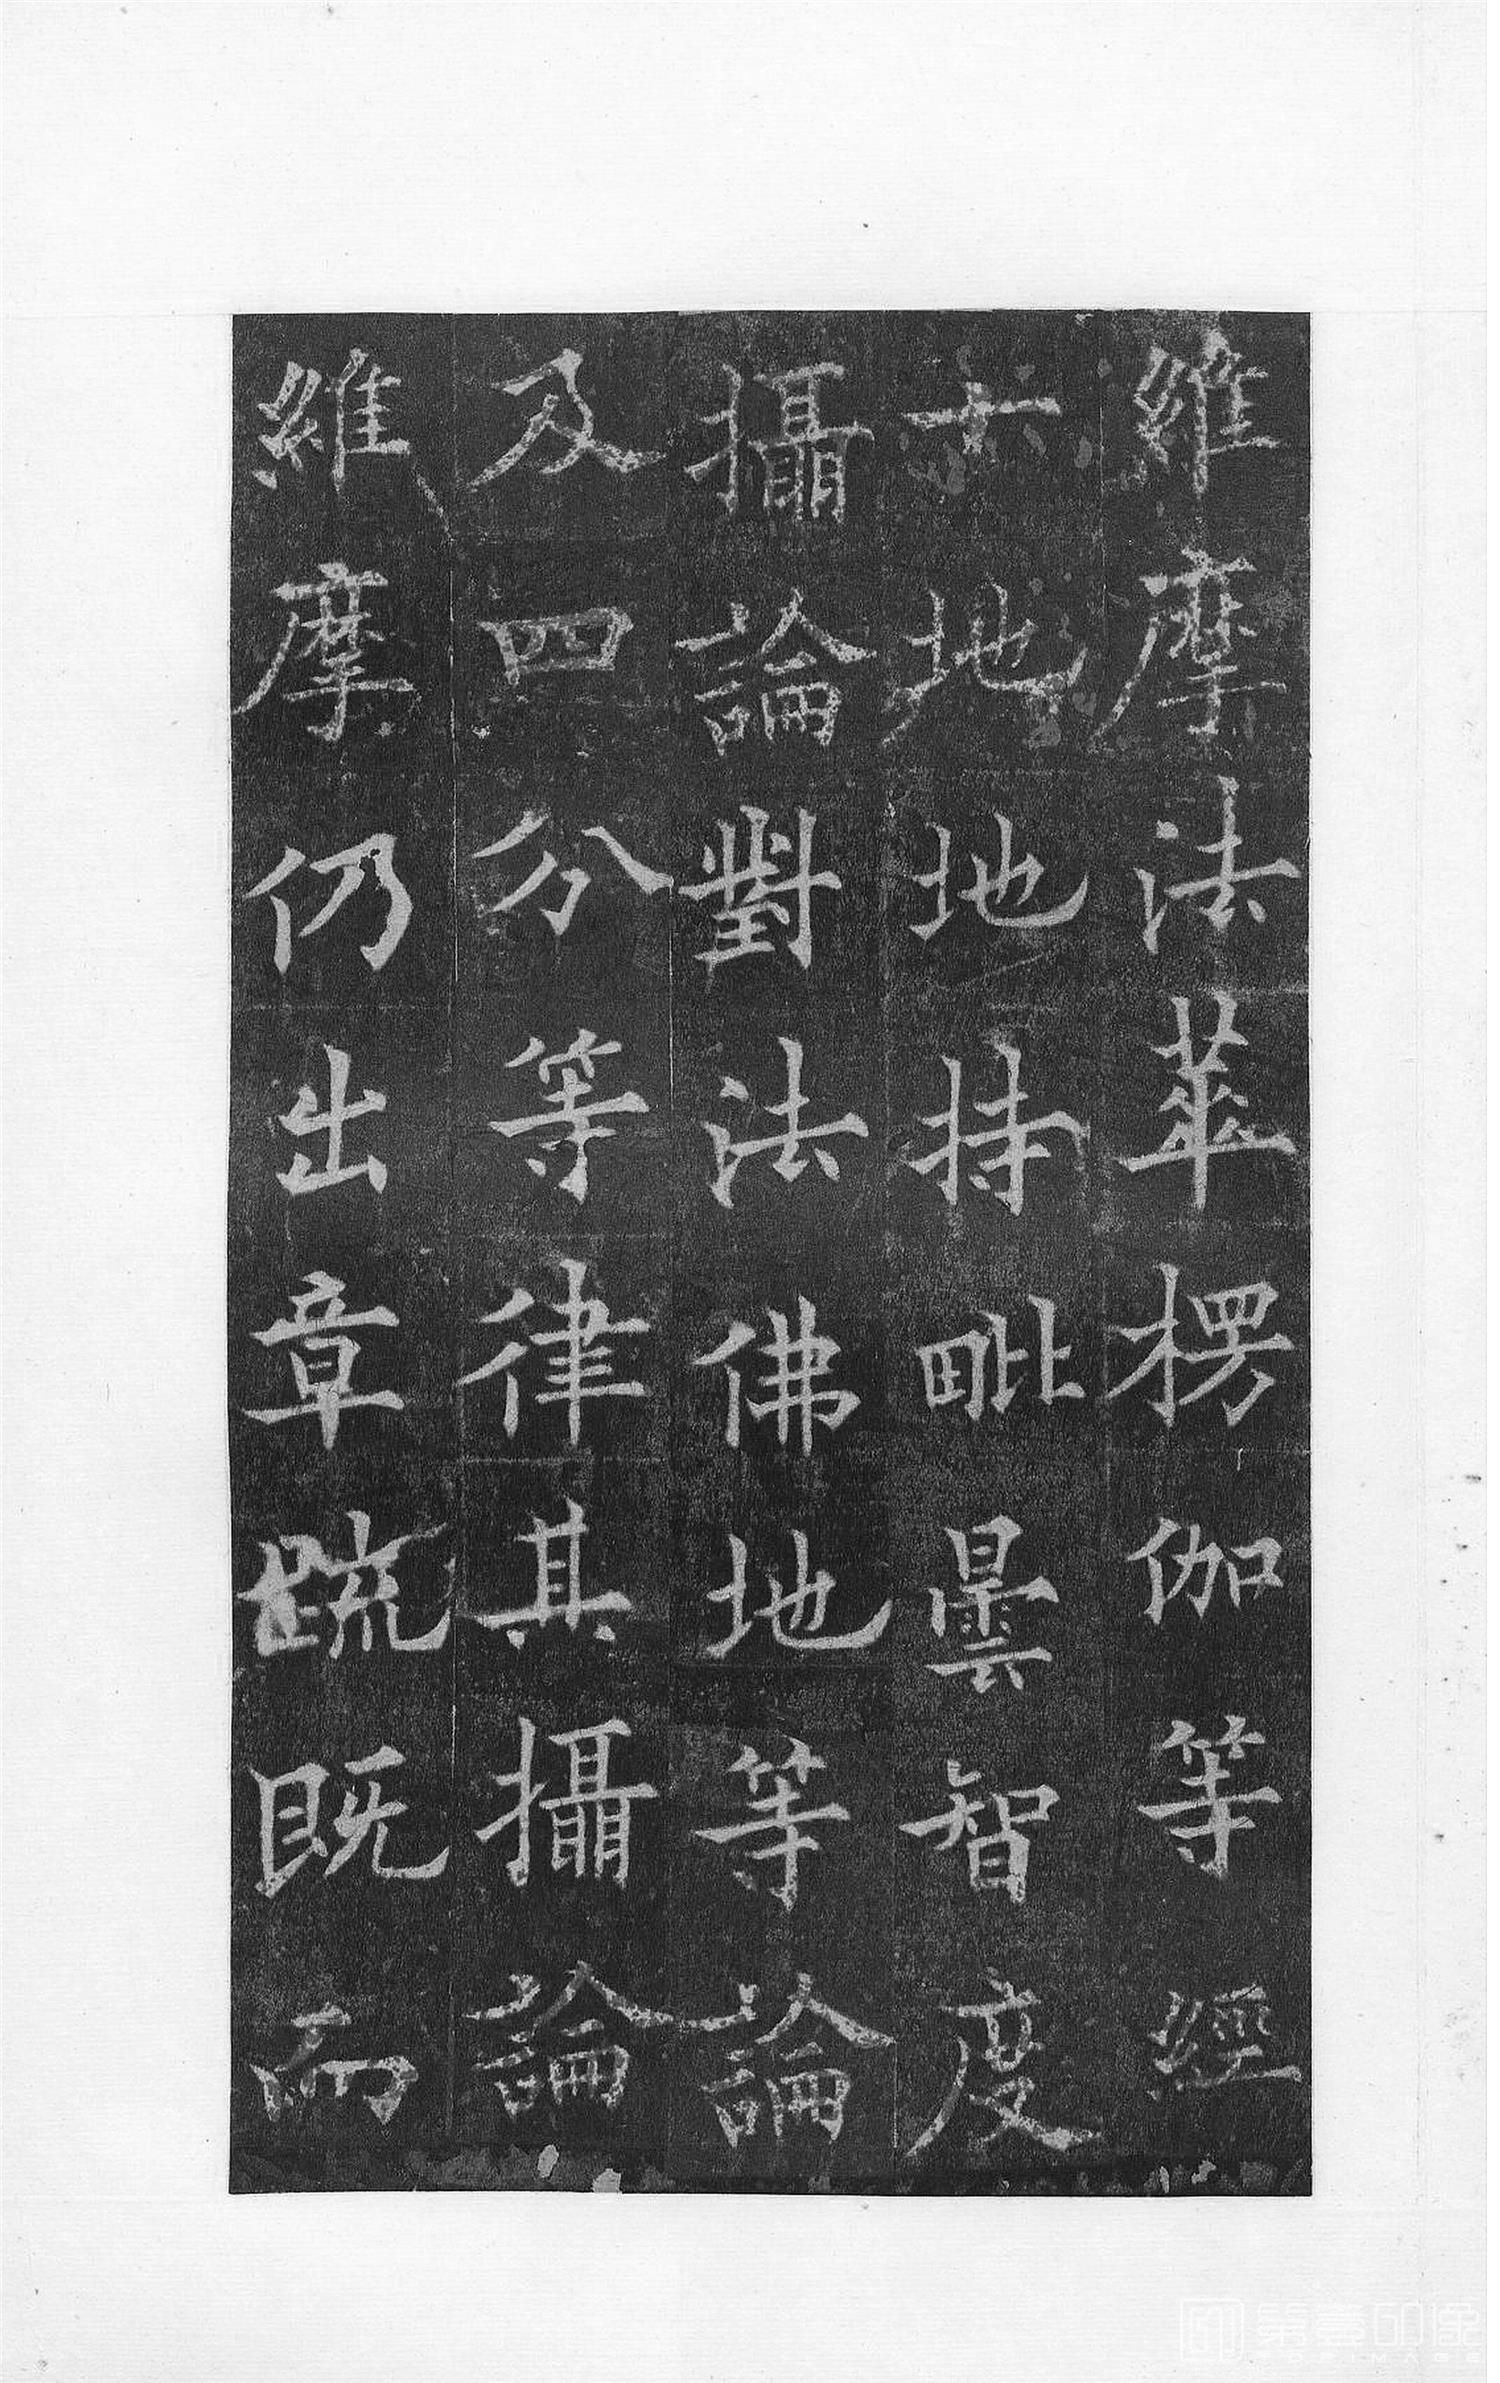 維摩法華楞伽等經
十地地持毗曇智度
攝論對法佛地等論
及四分等律其攝論
維摩仍出章疏既而
第壹印像
TOPIMAGE